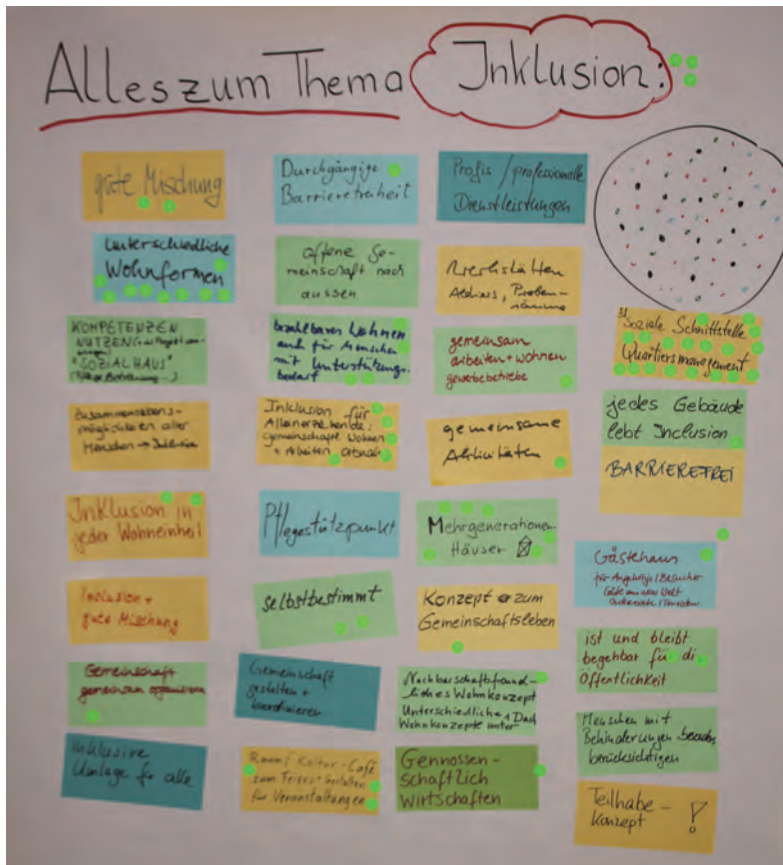 Alles zum Thema Inklusion:
gute Mischung
unterschiedliche
Wohnformen
KOMPETENZEN
NUTZEN
"SOZIALHAUS"
Zusammenlebens-
möglichkeiten aller
Menschen → Inklusion
Inklusion in
jeder Wohneinheit
Inclusion +
gute Mischung
Gemeinschaft
gemeinsam organisieren
inklusive
Umlage für alle
Durchgängige
Barrierefreiheit
offene Ge-
meinschaft nach
aussen
bezahlbares Wohnen
auch für Menschen
mit Unterstützungs-
bedarf
Inklusion für
Alleinerziehende:
gemeinschaftl. Wohnen
+ Arbeiten
Pflegestützpunkt
selbstbestimmt
Gemeinschaft
gestalten +
koordinieren
Raum/Kultur-Café
zum Feiern +
für Veranstaltungen
Profis / professionelle
Dienstleistungen
Werkstätten
Ateliers, Proben-
räume
gemeinsam
arbeiten + wohnen
gewerbebetriebe
gemeinsame
Aktivitäten
Mehrgenerationen
Häuser
Konzept zum
Gemeinschaftsleben
Nachbarschaftsfreund-
liches Wohnkonzept
Unterschiedliche 1 Dach
Wohnkonzepte unter
Gennossen-
schaftlich
wirtschaften
Soziale Schnittstelle
Quartiersmanagement
jedes Gebäude
lebt Inclusion
BARRIEREFREI
Gästehaus
für Angehörige/Besucher
Gäste aus aller Welt
ist und bleibt
begehbar für di
Öffentlichkeit
Menschen mit
Behinderungen besonders
berücksichtigen
Teilhabe-
Konzept !